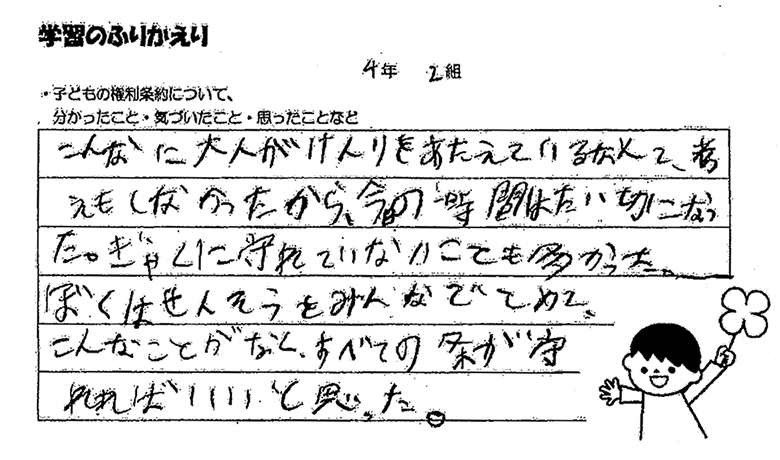 学習のふりかえり
4年 2組
・子どもの権利条約について、
分かったこと・気づいたこと・思ったことなど
こんなに大人がけんりをあたえているなんて、考
えもしなかったから、今日の時間はたい切になっ
た。ぎゃくに守れていないことも多かった。
ぼくはせんそうをみんなでとめて、
こんなことがなく、すべての条が守
れればいいと思った。